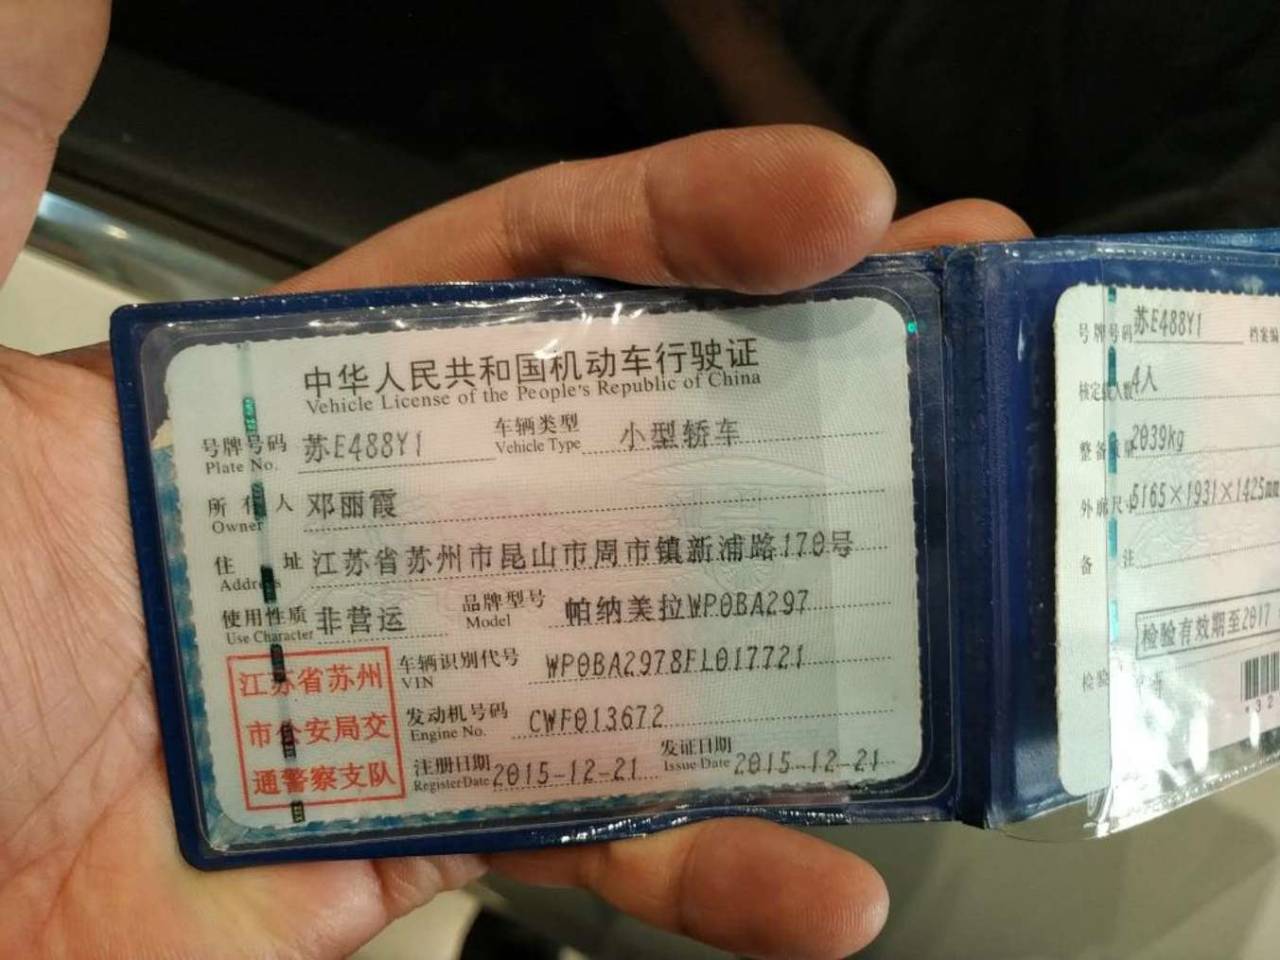 中华人民共和国机动车行驶证
Vehicle License of the People's Republic of China
号牌号码 苏E488Y1 车辆类型 小型轿车
Plate No. Vehicle Type
所有人 邓丽霞
Owner
住址 江苏省苏州市昆山市周市镇新浦路170号
Address
使用性质 非营运 品牌型号 帕纳美拉WP0BA297
Use Character Model
车辆识别代号 WP0BA2978FL017721
VIN
发动机号码 CWF013672
Engine No.
注册日期 2015-12-21 发证日期 2015-12-21
Register Date Issue Date
江苏省苏州
市公安局交
通警察支队
号牌号码 苏E488Y1 档案编
核定载人数 4人
整备质量 2039kg
外廓尺寸 5165×1931×1425mm
备注
检验有效期至2017
检验
*32